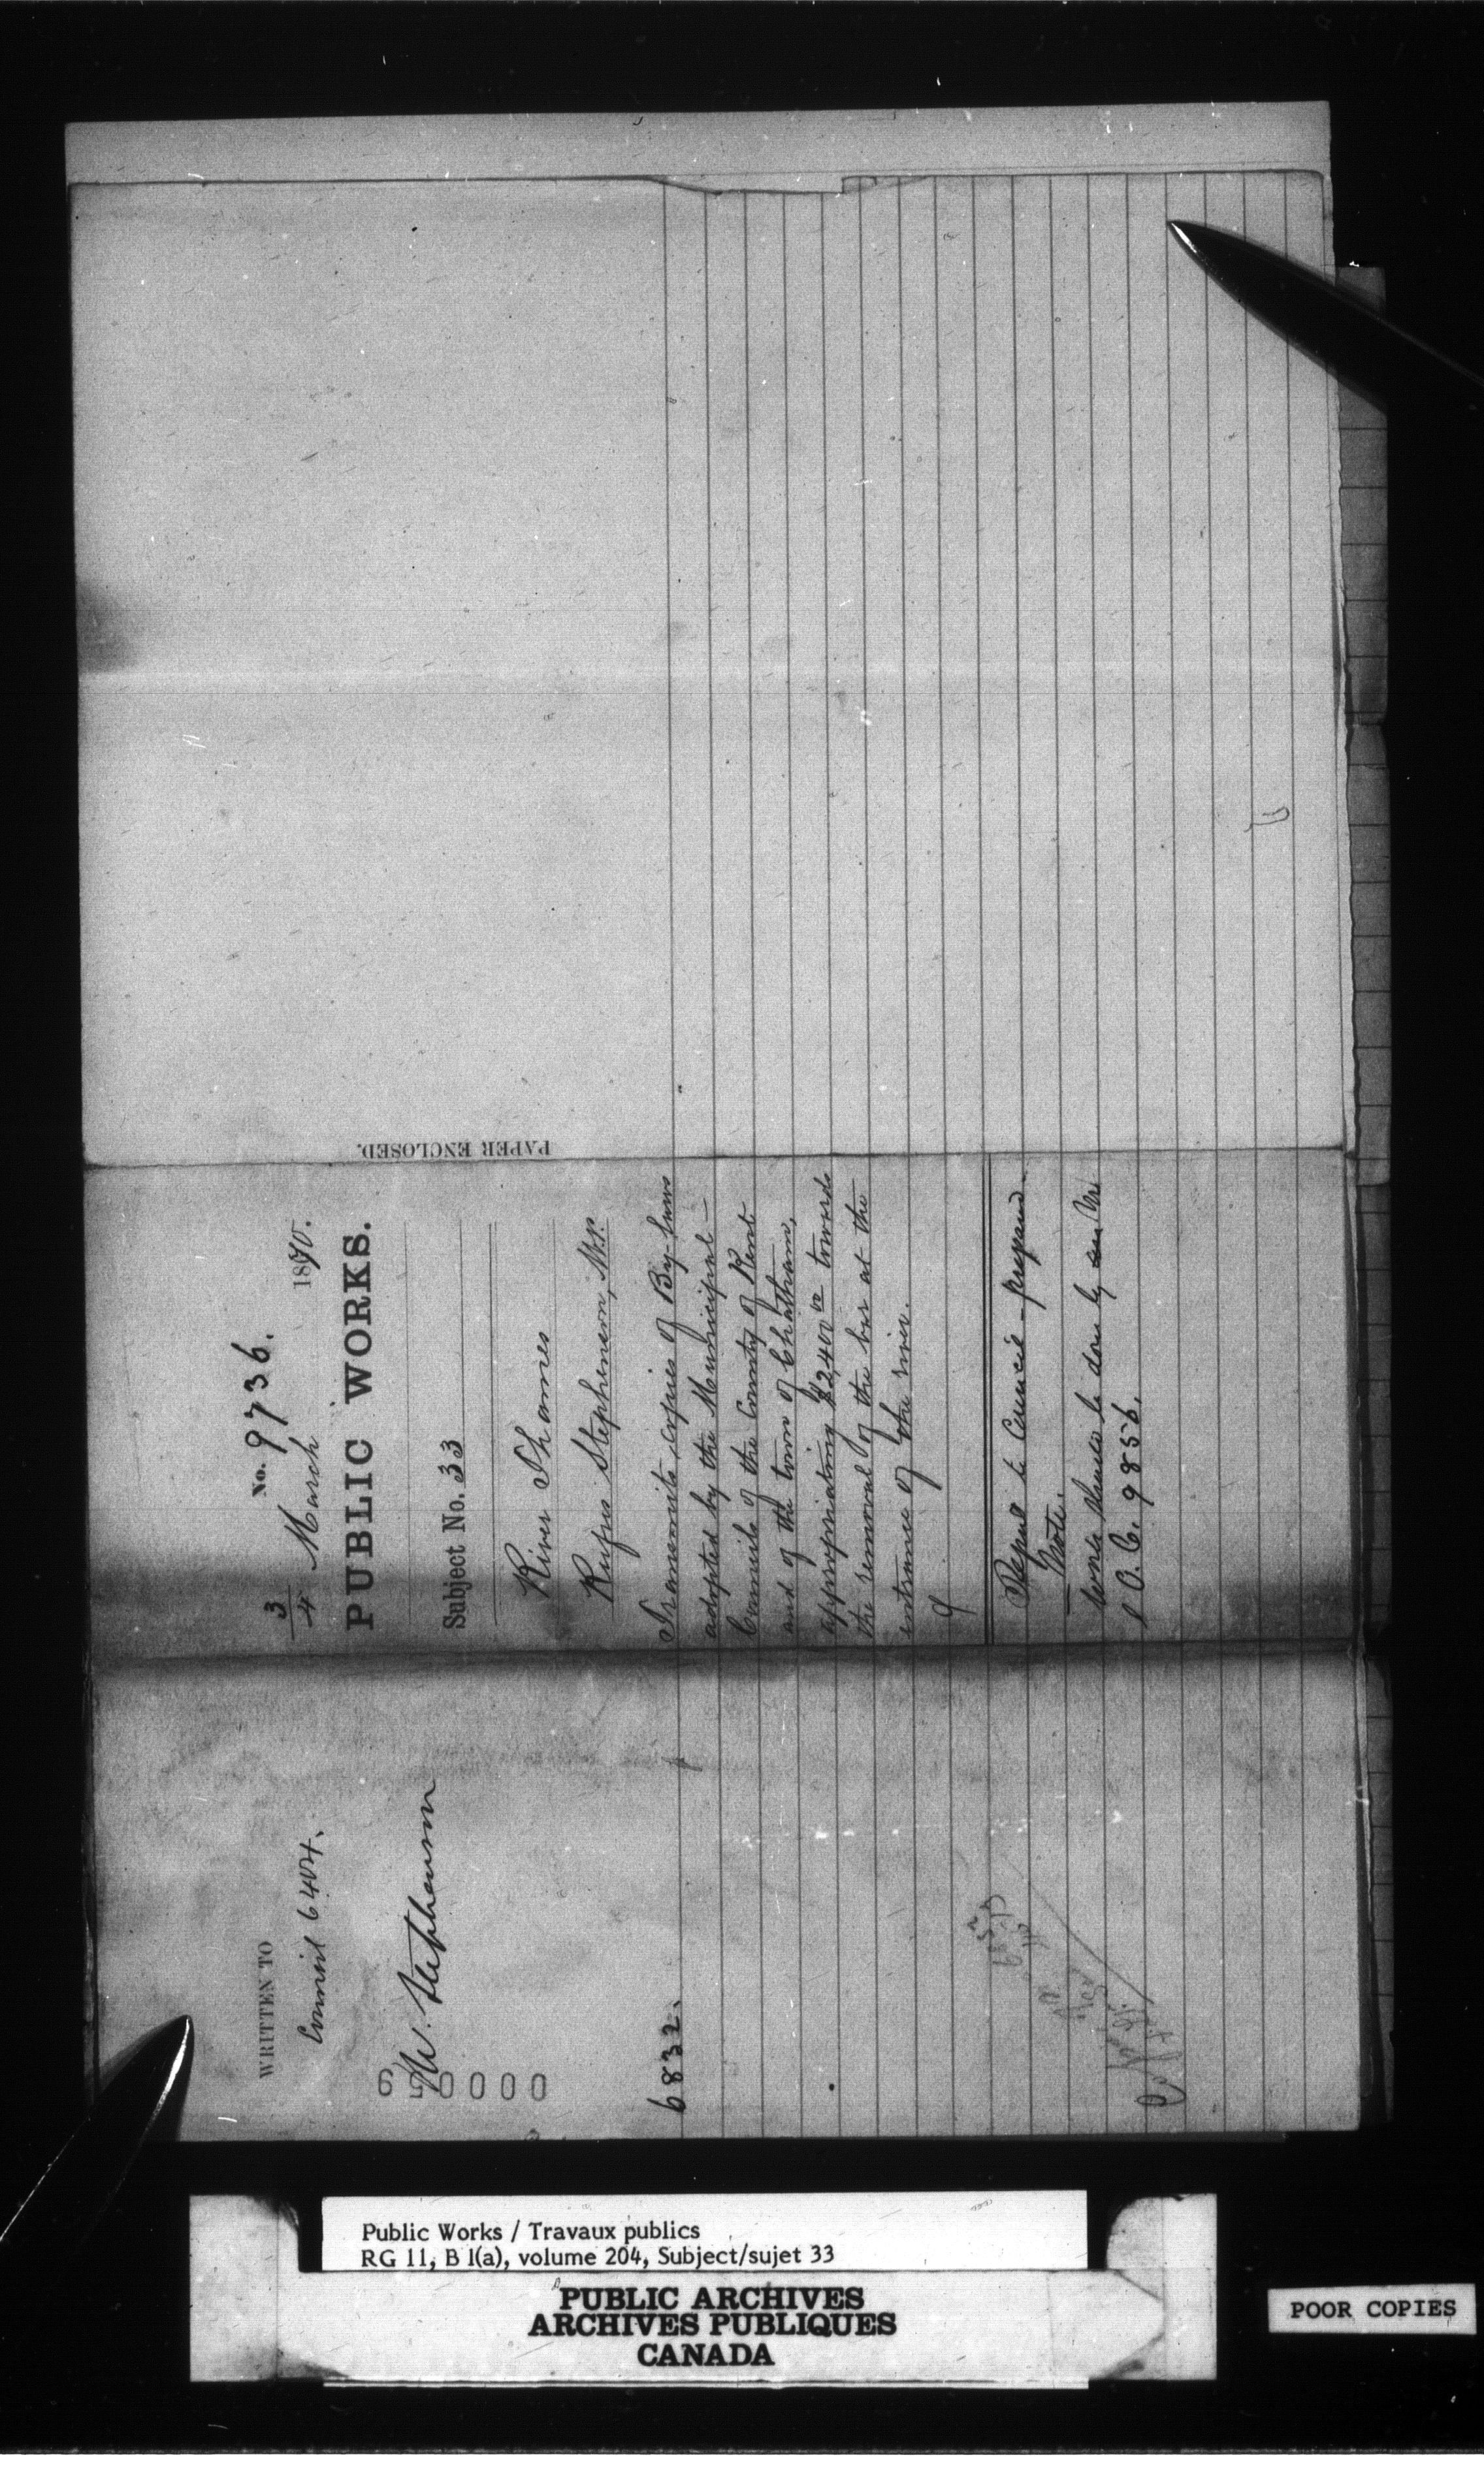 WRITTEN TO
Council 6404.
W. Stephenson
6832.
No. 9736.
3/4 March 1870.
PUBLIC WORKS.
Subject No. 33
River Thames
Rufus Stephenson, M.P.
Transmits copies of By-laws
adopted by the Municipal
Councils of the County of Kent
and of the town of Chatham,
appropriating $2,400 00 towards
the removal of the bar at the
entrance of the river.
Report to Council prepared.
Note.
Work should be done by
O.C. 9856.
PAPER ENCLOSED.
Public Works / Travaux publics
RG 11, B 1(a), volume 204, Subject/sujet 33
PUBLIC ARCHIVES
ARCHIVES PUBLIQUES
CANADA
POOR COPIES